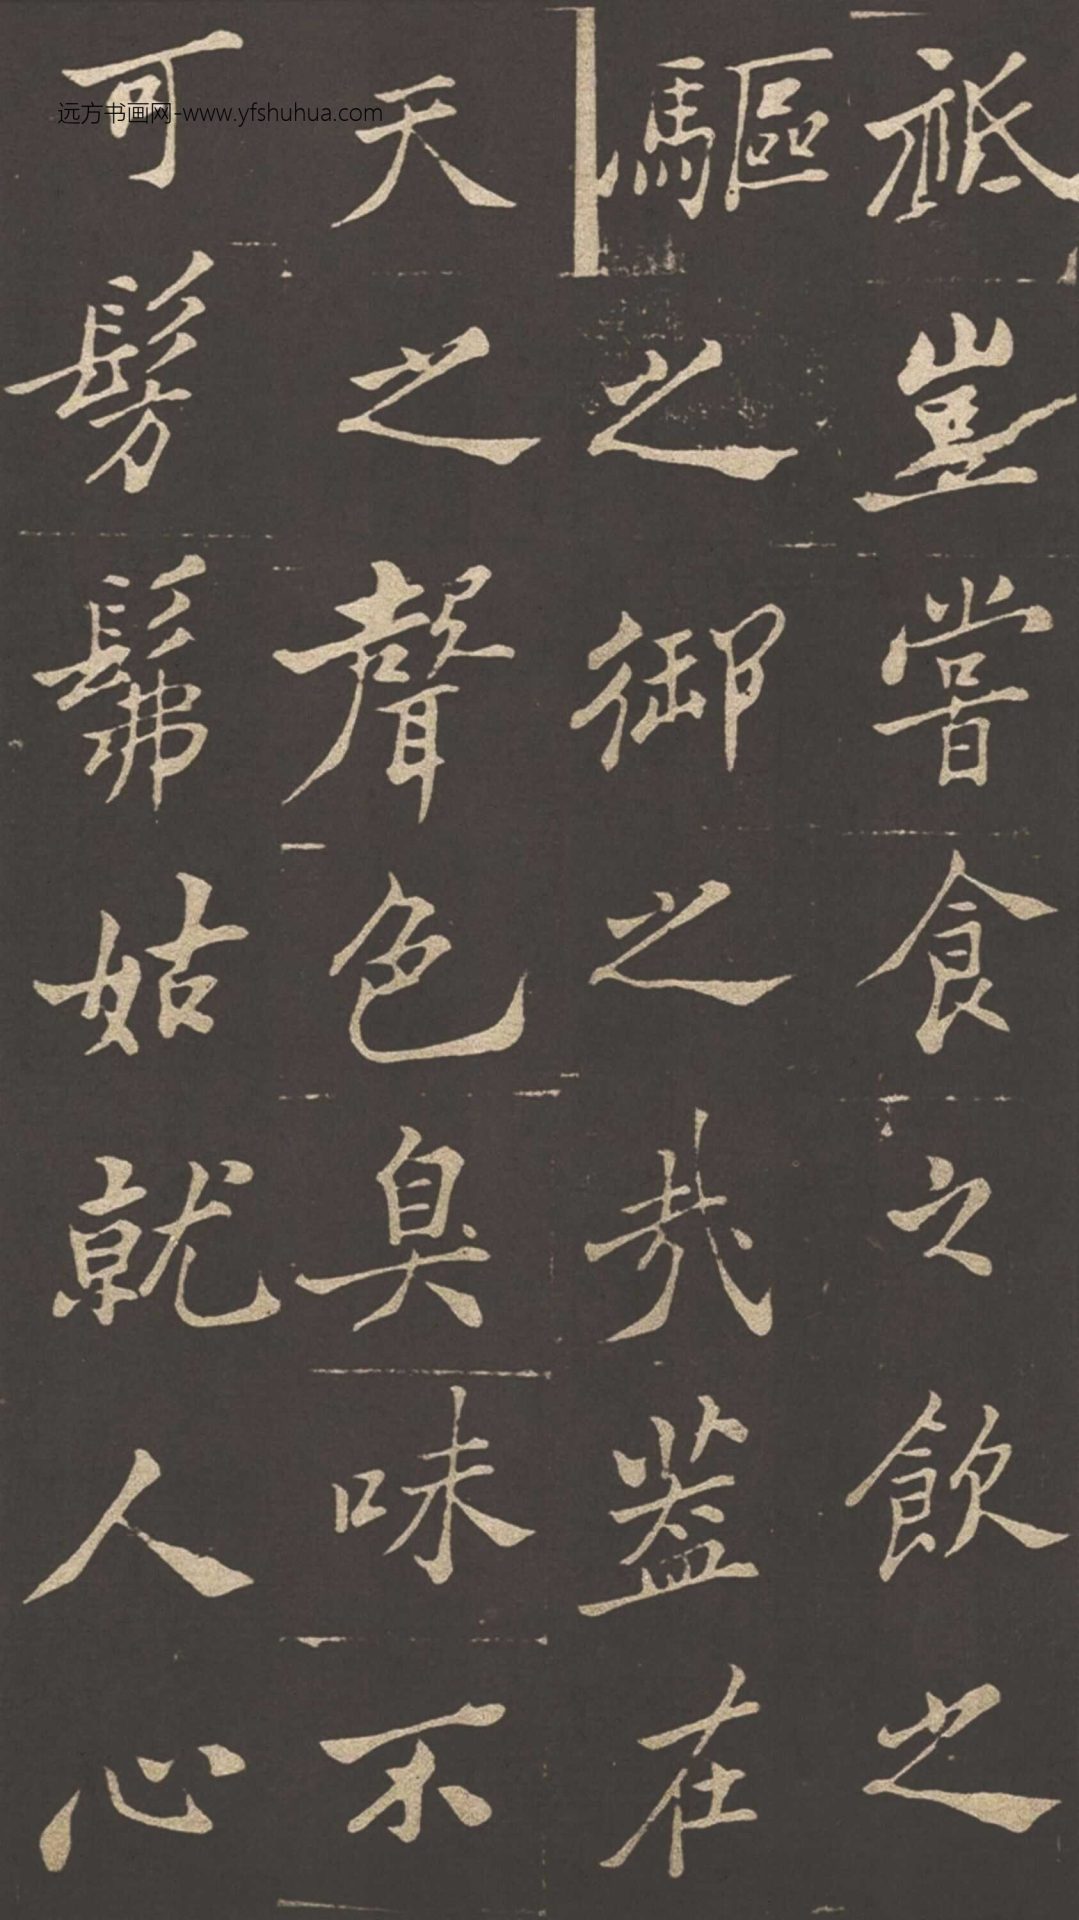 祇豈嘗食之飲之
驅之御之哉葢在
天之聲色臭味不
可髣髴姑就人心
远方书画网-www.yfshuhua.com